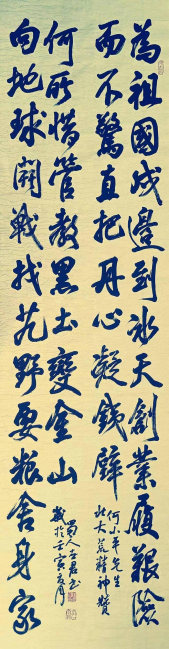 為祖國戍邊到冰天創業履艱險
而不驚直把丹心凝鐵臂
何小平先生
北大荒精神贊
向地球開戰找荒野要粮舍身家
何所惜管教黑土變金山
蜀人王
書
歲於壬寅夏月